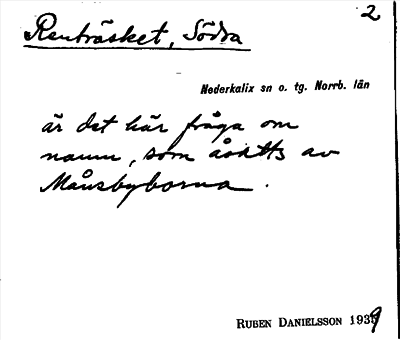 2
Renträsket, Södra
Nederkalix sn o. tg. Norrb. län
är det här fråga om
namn, som åsatts av
Månsbyborna.
RUBEN DANIELSSON 1939